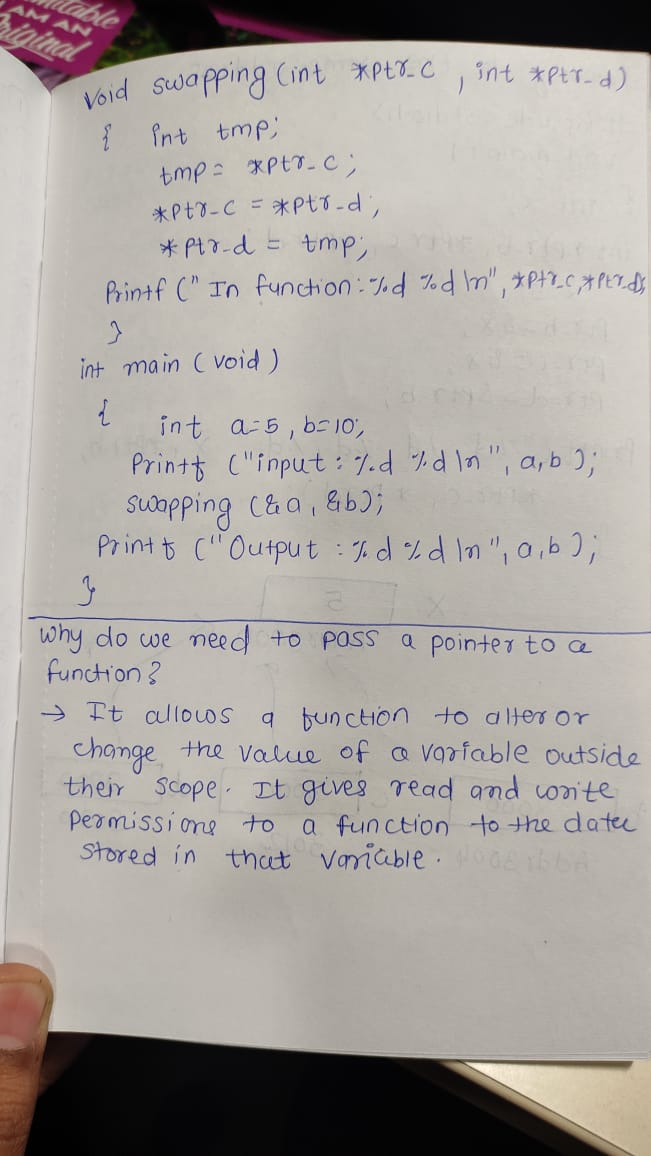 AM AN
Original
Void swapping (int *ptr_c , int *ptr_d)
{ int tmp;
tmp = *ptr_c ;
*ptr_c = *ptr_d ;
*ptr_d = tmp;
Printf (" In function : %d %d \n", *ptr_c, *ptr_d);
}
int main ( void )
{ int a=5 , b=10;
Printf ("input : %d %d \n ", a,b );
swapping (&a , &b);
Printf ("Output : %d %d \n ", a,b );
}
Why do we need to pass a pointer to a
function?
→ It allows a function to alter or
change the value of a variable outside
their scope. It gives read and write
permissions to a function to the data
stored in that variable.